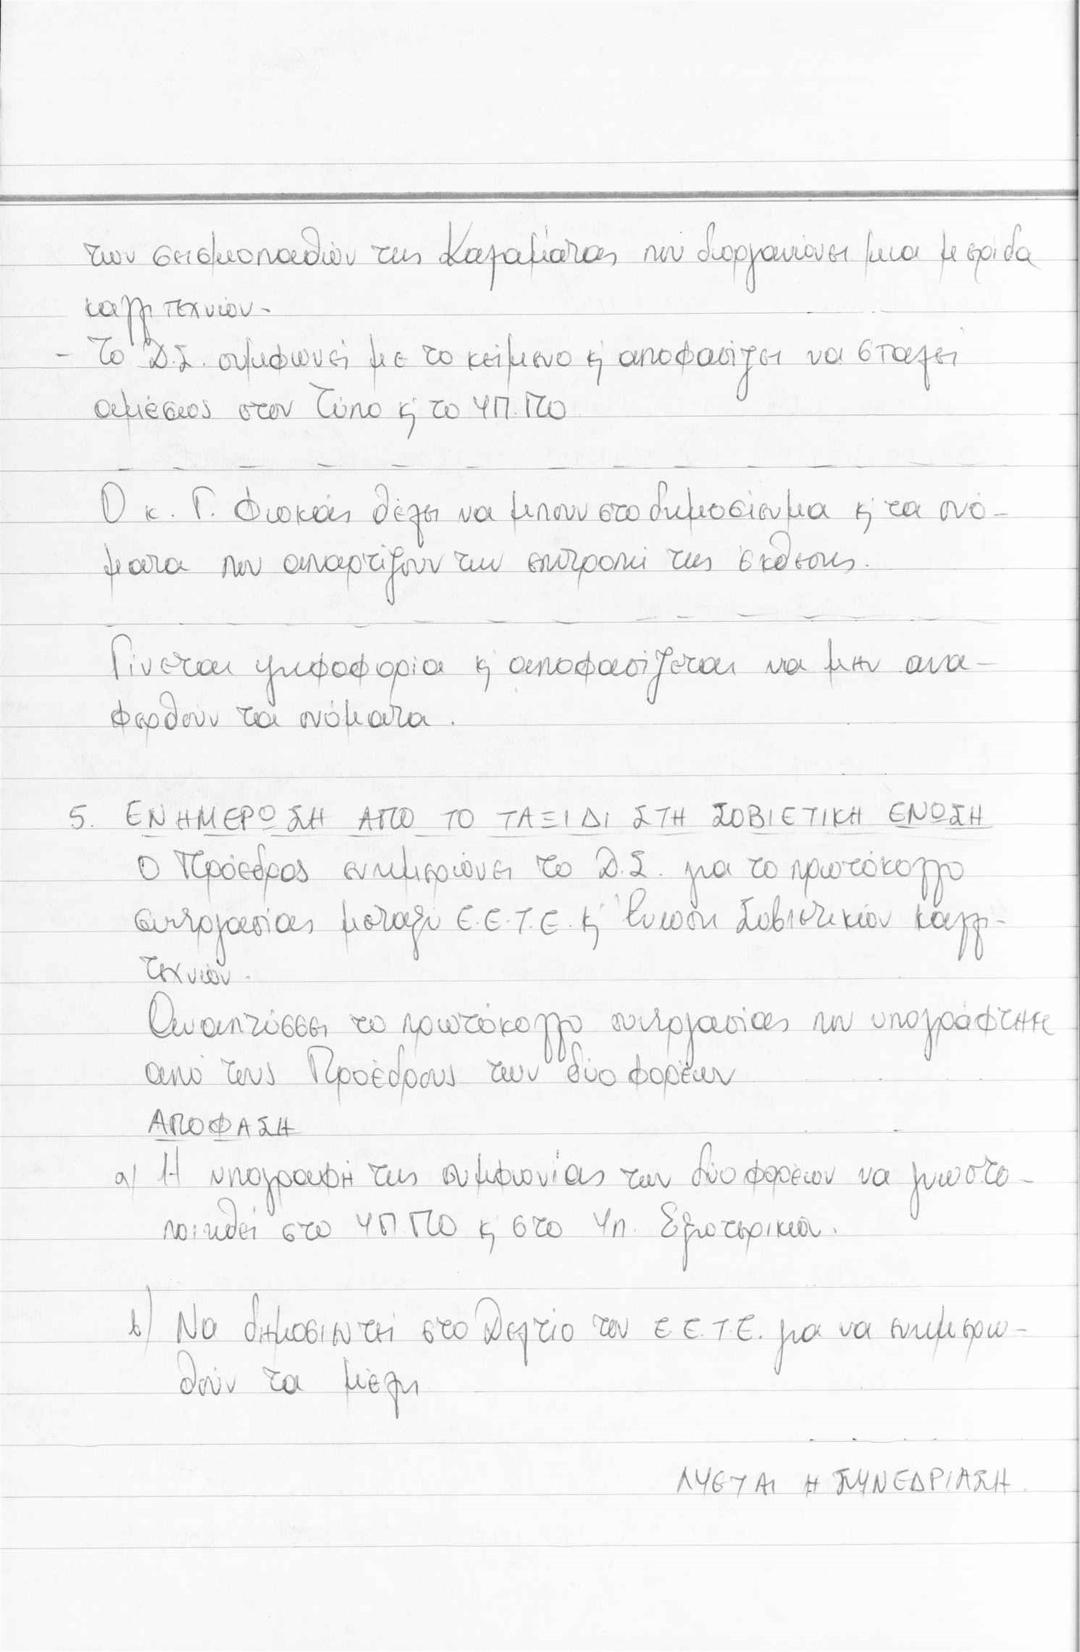 των σεισμοπαθών της Καλαμάτας που διοργανώνει μια μερίδα
καλλιτεχνών.
- Το Δ.Σ. συμφωνεί με το κείμενο κ αποφασίζει να σταλεί
αμέσως στον Τύπο κ το ΥΠ.ΠΟ
Ο κ. Γ. Φωκάς θέλει να μπουν στο δημοσίευμα κ τα ονό-
ματα που απαρτίζουν την επιτροπή της έκθεσης.
Γίνεται ψηφοφορία κ αποφασίζεται να μην ανα-
φερθούν τα ονόματα.
5. ΕΝΗΜΕΡΩΣΗ ΑΠΟ ΤΟ ΤΑΞΙΔΙ ΣΤΗ ΣΟΒΙΕΤΙΚΗ ΕΝΩΣΗ
Ο Πρόεδρος ενημερώνει το Δ.Σ. για το πρωτόκολλο
συνεργασίας μεταξύ Ε.Ε.Τ.Ε. κ Ένωση Σοβιετικών καλλι-
τεχνών.
Αναπτύσσει το πρωτόκολλο συνεργασίας που υπογράφτηκε
από τους Προέδρους των δύο φορέων
ΑΠΟΦΑΣΗ
α) Η υπογραφή της συμφωνίας των δύο φορέων να γνωστο-
ποιηθεί στο ΥΠ.ΠΟ κ στο Υπ. Εξωτερικών.
β) Να δημοσιευτεί στο Δελτίο του Ε.Ε.Τ.Ε. για να ενημερω-
θούν τα μέλη
ΛΥΕΤΑΙ Η ΣΥΝΕΔΡΙΑΣΗ